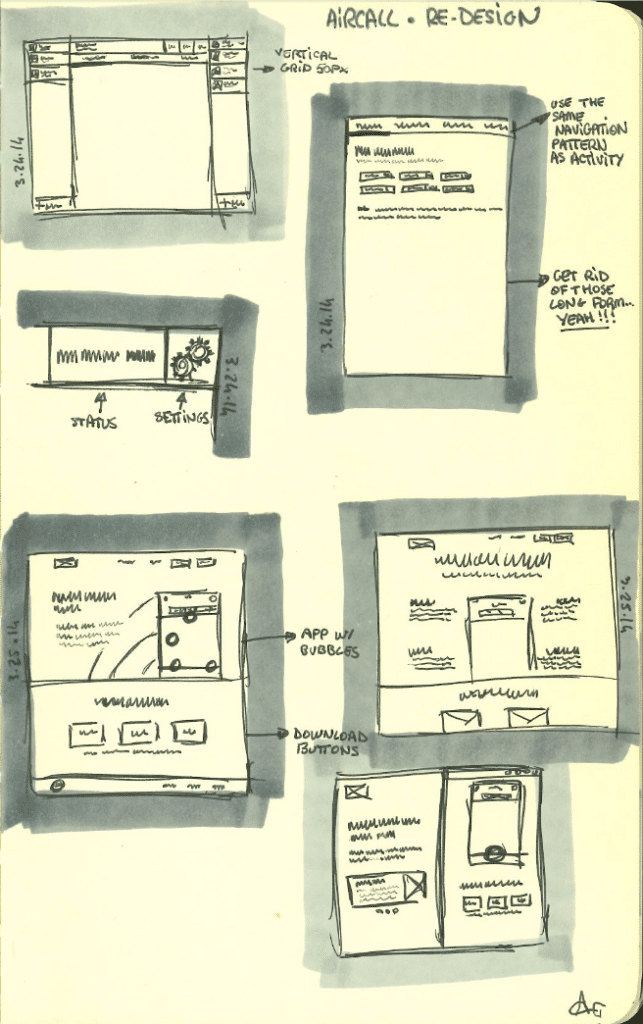 AIRCALL • RE-DESIGN
VERTICAL
GRID 50PX
3.24.14
USE THE
SAME
NAVIGATION
PATTERN
AS ACTIVITY
GET RID
OF THOSE
LONG FORM...
YEAH!!!
3.24.14
3.24.14
STATUS
SETTINGS
3.25.14
APP W/
BUBBLES
DOWNLOAD
BUTTONS
3.25.14